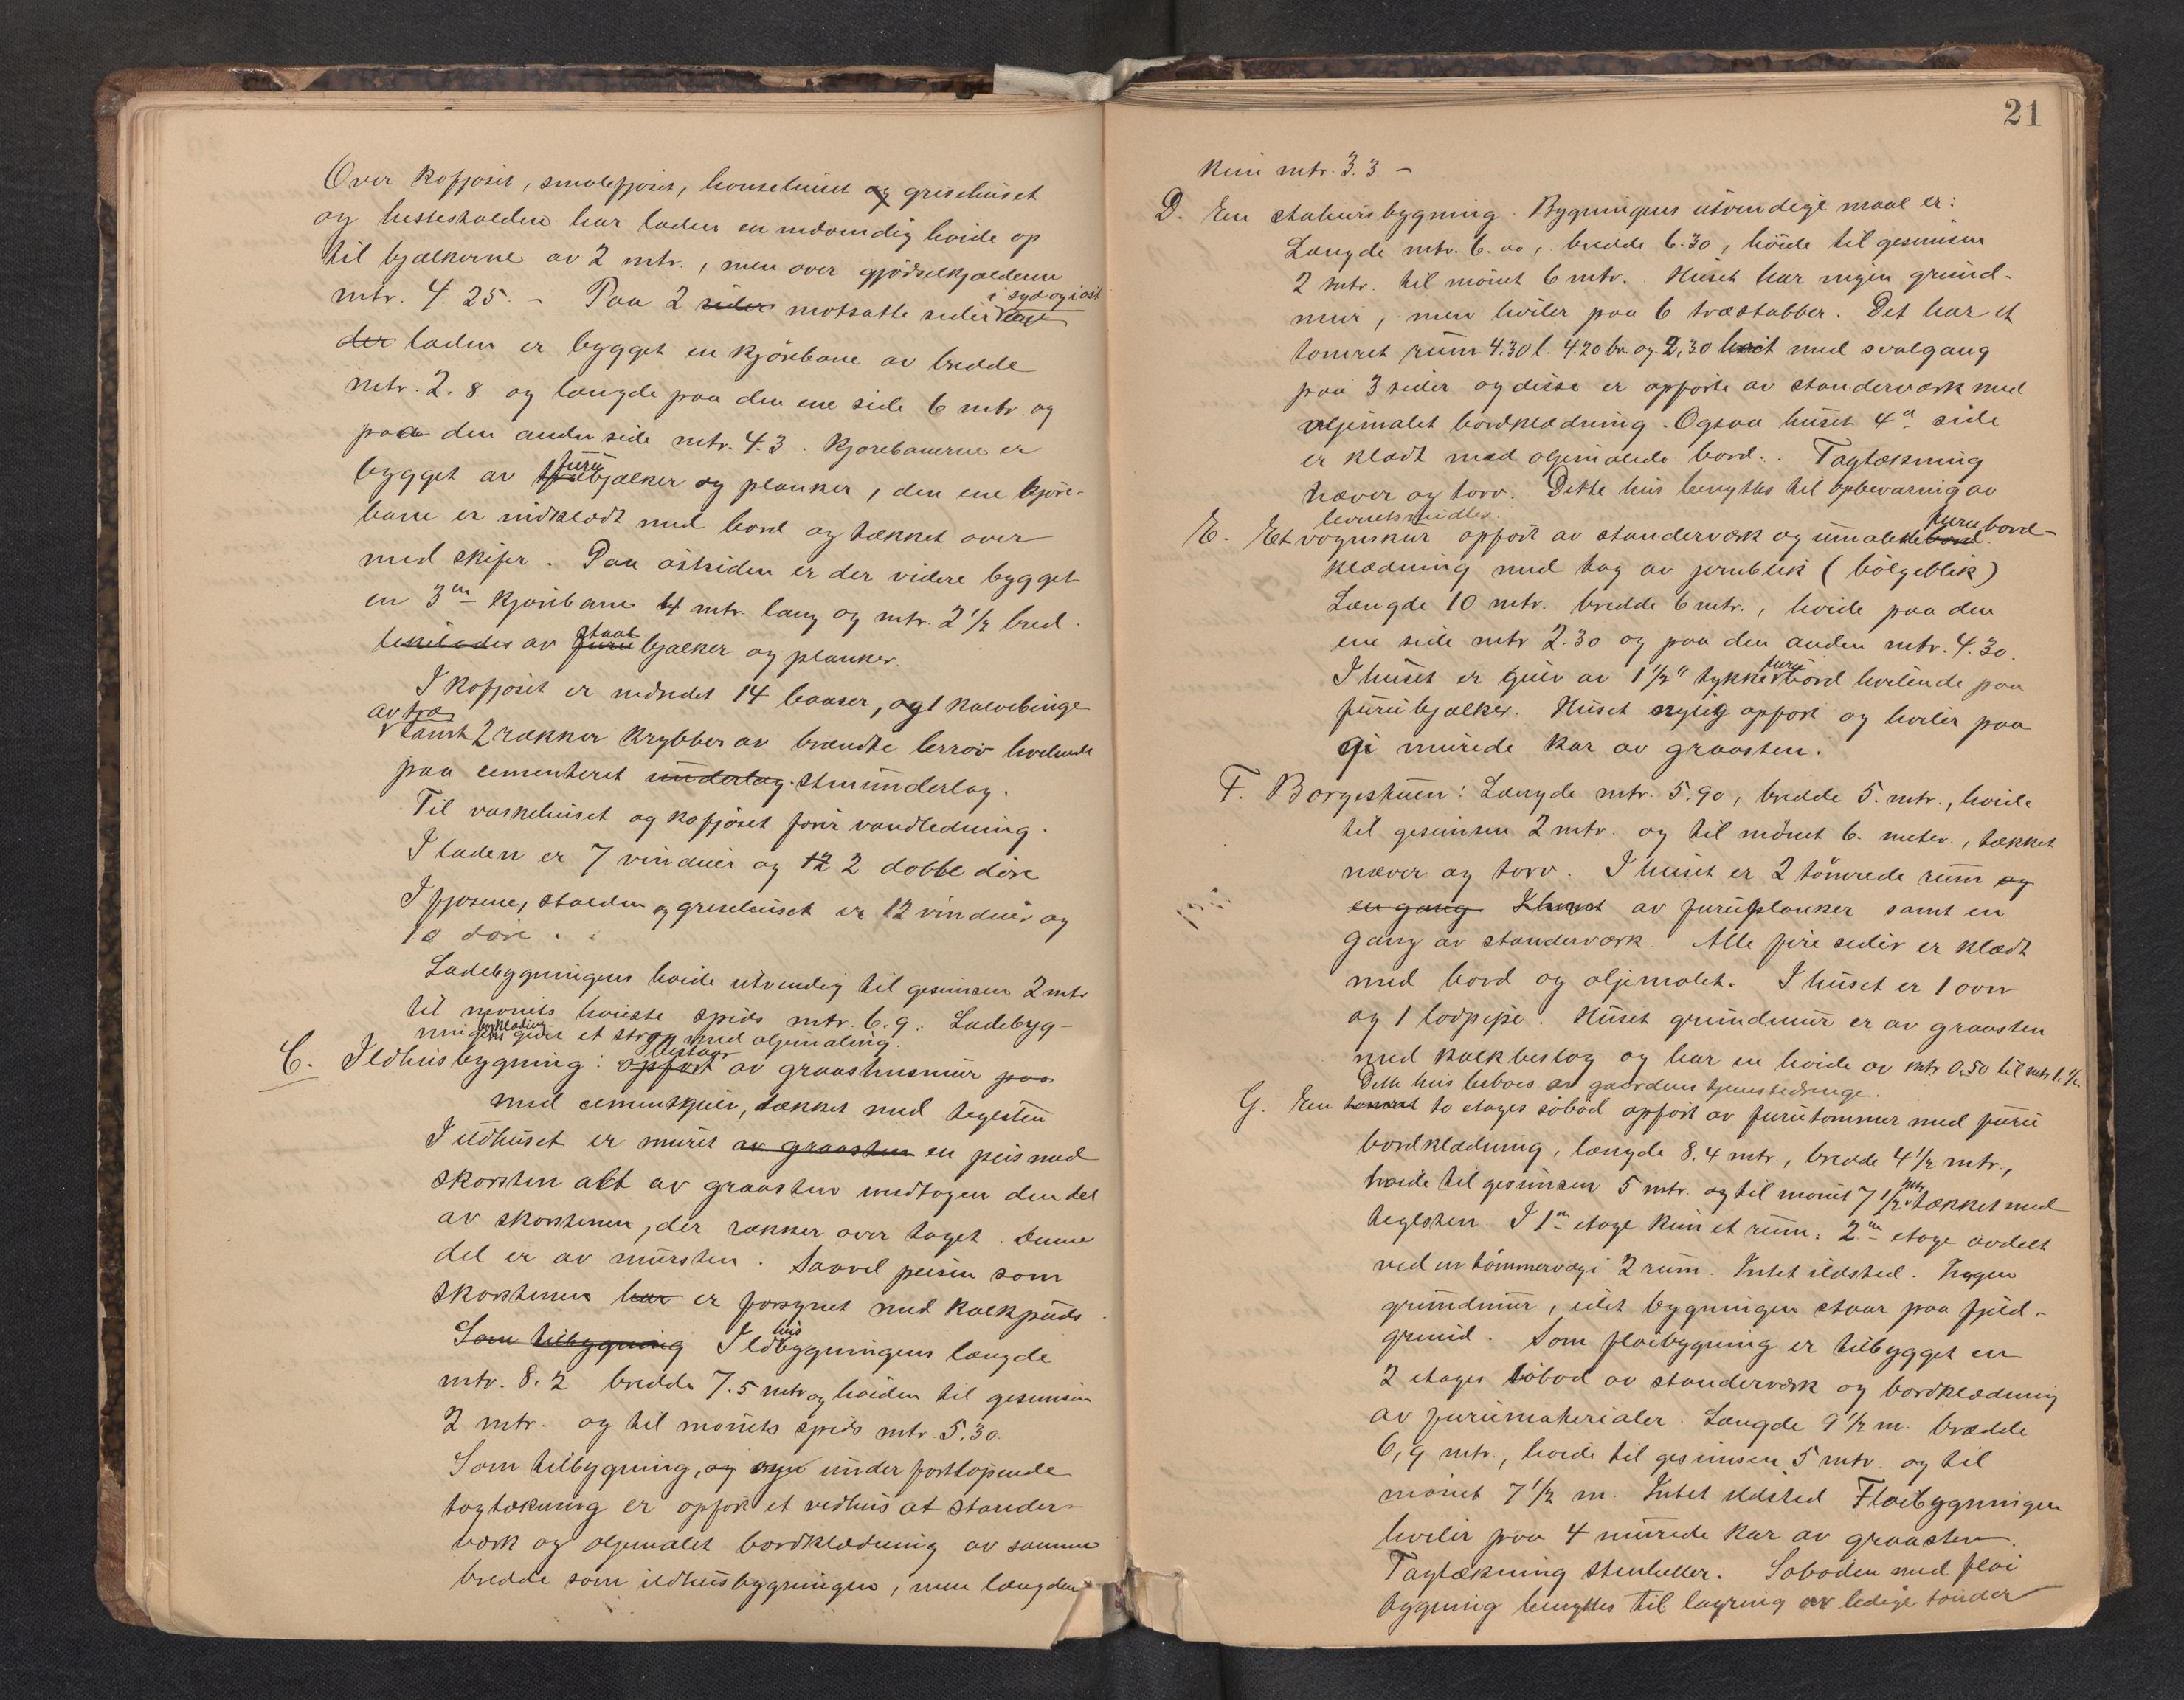 Over kofjøset, smalefjøset, hønsehuset og grisehuset
og hestestalden har laden en indvendig høide op
til bjælkerne av 2 mtr., men over gjødselkjælderen
mtr. 4.25. – Paa 2 sider motsatte sider i syd og i øst
der laden er bygget en kjørebane av bredde
mtr. 2.8 og længde paa den ene side 6 mtr. og
paa den anden side mtr. 4.3. Kjørebanerne er
bygget av furubjælker og planker, den ene kjøre-
bane er indklædt med bord og tækket over
med skifer. Paa østsiden er der videre bygget
en 3en kjørebane 4 mtr. lang og mtr. 2 1/2 bred.
av furu staalbjælker og planker.
I kofjøset er indredet 14 baaser, og 1 kalvebinge
av træ samt 2 rækker krybber av brændte lerrør hvilende
paa cementeret underlag stenunderlag.
Til vaskehuset og kofjøset fører vandledning.
I laden er 7 vinduer og 12 2 dobbe døre
I fjøsene, stalden og grisehuset er 12 vinduer og
10 døre.
Ladebygningens høide utvendig til gesimsen 2 mtr
til mønets høieste spids mtr. 6.9. Ladebyg-
ningens bordklædning givet et strøg med oljemaling.
C. Ildhusbygning: opført bestaar av graastensmur paa
med cementgulv, tækket med teglsten
I ildhuset er muret av graasten en peis med
skorsten alt av graasten undtagen den del
av skorstenen, der rækker over taget. Denne
del er av mursten. Saavel peisen som
skorstenen har er forsynet med kalkpuds.
Som tilbygning Ildhusbygningens længde
mtr. 8.2 bredde 7.5 mtr og høiden til gesimsen
2 mtr. og til mønets spids mtr. 5.30.
Som tilbygning, og under fortløpende
tagtækning er opført et vedhus at stender-
værk og oljemalet bordklædning av samme
bredde som ildhusbygningen, men længden
21
kun mtr. 3.3. –
D. En stabursbygning. Bygningens utvendige maal er:
Længde mtr. 6.00, bredde 6.30, høide til gesimsen
2 mtr. til mønet 6 mtr. Huset har ingen grund-
mur, men hviler paa 6 træstabber. Det har et
tømret rum 4.30 l. 4.20 br. og 2,30 høit med svalgang
paa 3 sider og disse er opførte av stenderværk med
oljemalet bordklædning. Ogsaa husets 4de side
er klædt med oljemalede bord. Tagtækning
næver og torv. Dette hus benyttes til opbevaring av
levnetsmidler.
E. Et vognskur opført av stenderværk og umalede bord furu bord-
klædning med tag av jernblik (bølgeblik)
Længde 10 mtr. bredde 6 mtr., høide paa den
ene side mtr 2.30 og paa den anden mtr. 4.30.
I huset er gulv av 1 1/2" tykke furu bord hvilende paa
furubjælker. Huset nylig opført og hviler paa
9 murede kar av graasten.
F. Borgestuen: Længde mtr. 5.90, bredde 5. mtr., høide
til gesimsen 2 mtr. og til mønet 6. meter., tækket
næver og torv. I huset er 2 tømrede rum og
en gang av furuplanker samt en
gang av stenderværk. Alle fire sider er klædt
med bord og oljemalet. I huset er 1 ovn
og 1 lodpipe. Huset grundmur er av graasten
med kalkbeslag og har en høide av mtr 0.50 til mtr 1.1/2
Dette hus beboes av gaardens tjenestedrenge.
G. En tømret to etages søbod opført av furutømmer med furu
bordklædning, længde 8.4 mtr., bredde 4 1/2 mtr.,
høide til gesimsen 5 mtr. og til mønet 7 1/2 mtr tækket med
teglsten. I 1ste etage kun et rum. 2den etage avdelt
ved en tømmervæg i 2 rum. Intet ildsted. Ingen
grundmur, idet bygningen staar paa fjeld-
grund. Som fløibygning er tilbygget en
2 etages søbod av stenderværk og bordklædning
av furumaterialer. Længde 9 1/2 m. brædde
6,9 mtr., høide til gesimsen 5 mtr. og til
mønet 7 1/2 m. Intet ildsted Fløibygningen
hviler paa 4 murede kar av graasten.
Tagtækning stenheller. Søboden med fløi
bygning benyttes til lagring av ledige tønder